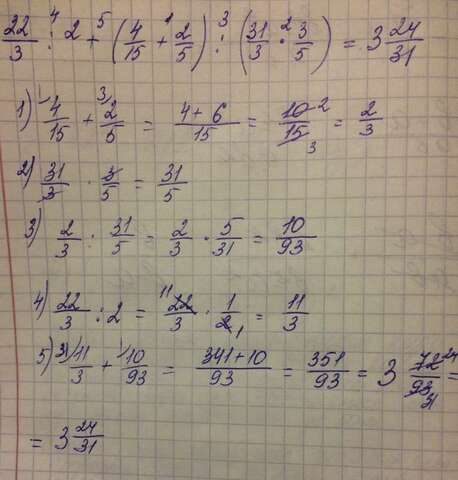 22/3 : 2 + (4/15 + 2/5) : (31/3 · 3/5) = 3 24/31
1) 4/15 + 2/5 = 4+6/15 = 10/15 = 2/3
2) 31/3 · 3/5 = 31/5
3) 2/3 : 31/5 = 2/3 · 5/31 = 10/93
4) 22/3 : 2 = 22/3 · 1/2 = 11/3
5) 11/3 + 10/93 = 341+10/93 = 351/93 = 3 72/93 =
= 3 24/31